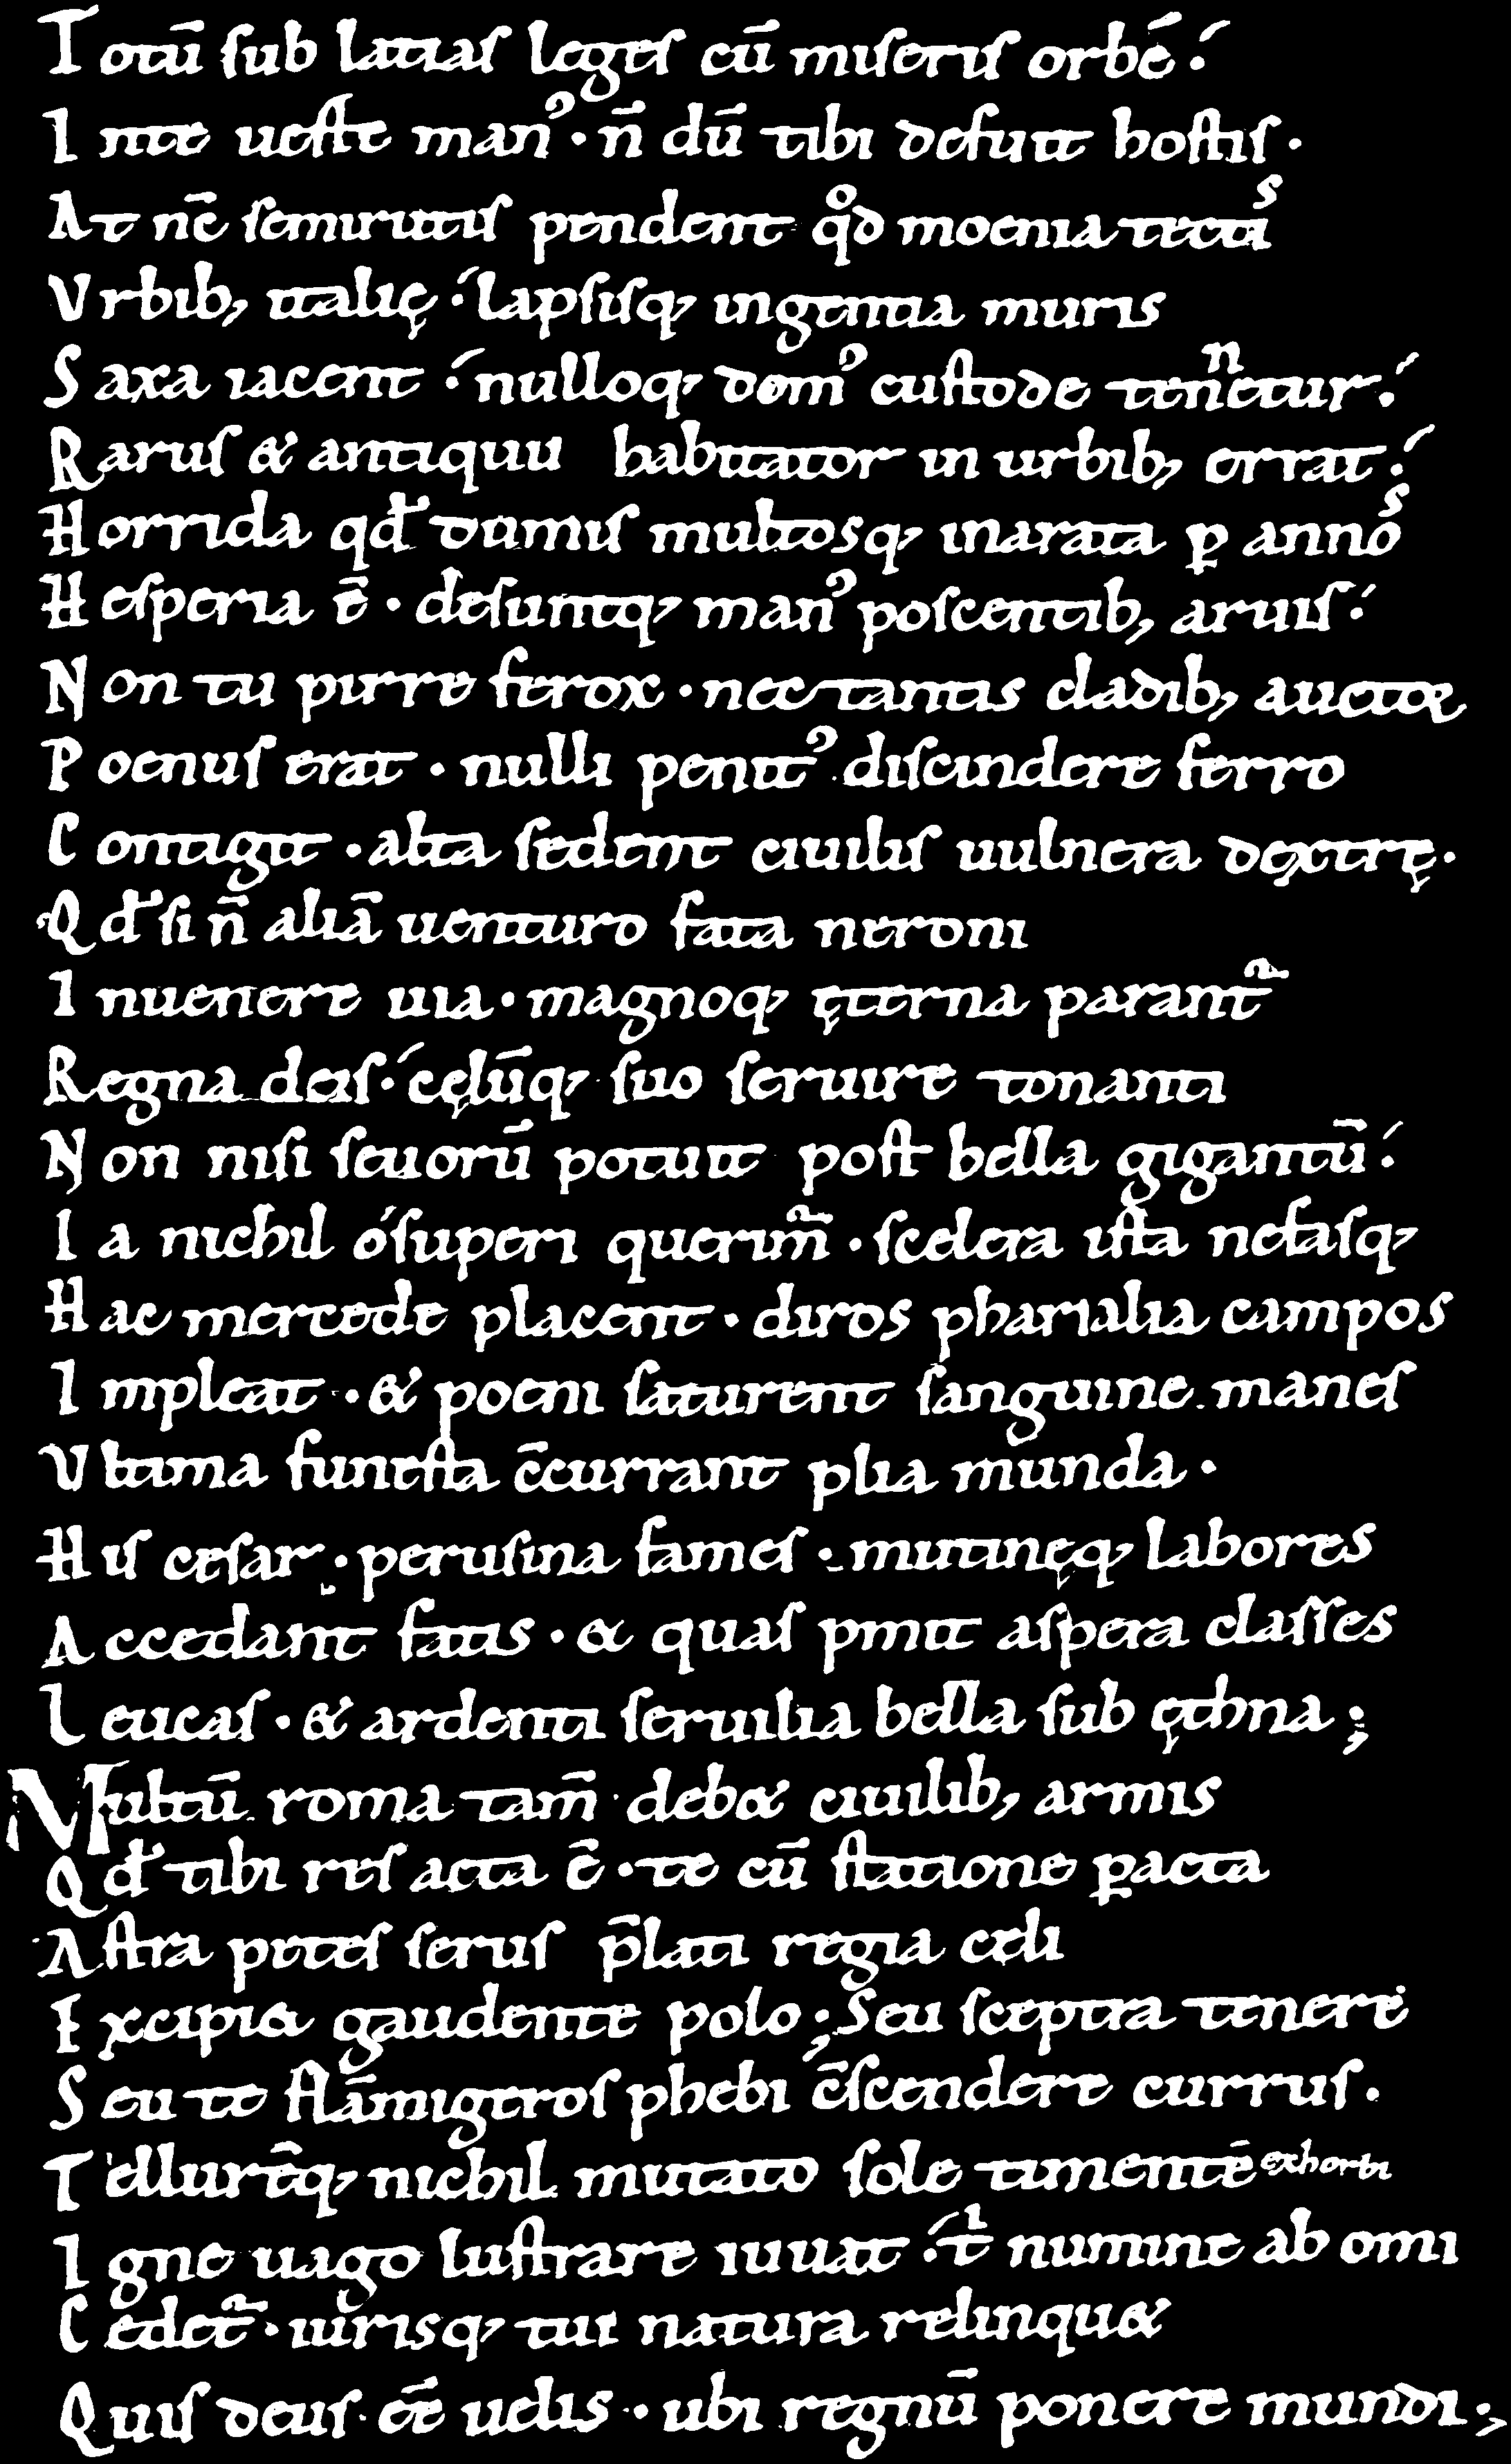 Totū ſub latiaſ legeſ cū miſeriſ orbē.
In te ueſte manꝰ · n̄ dū tibi defuit hoſtiſ ·
At nc̄ ſemirutiſ pendent qͦd moenia tectiſ
Vrbib; italię. lapſiſq; ingentia muris
Saxa iacent. nulloq; domꝰ cuſtode tenentur.
Raruſ & antiquu habitator in urbib; errat.
Horrida qđ dumiſ multosq; inarata ꝑ annoſ
Heſperia ē · deſuntq; manꝰ poſcentib; aruiſ.
Non tu pirre ferox · nec tantis cladib; auctoꝛ
Poenuſ erat · nulli penitꝰ diſcindere ferro
Contigit · alta ſedent ciuiliſ uulnera dextrę ·
Qđ ſi n̄ aliā uenturo fata neroni
Inuenere uia · magnoq; ęterna parant᷑
Regna deiſ. cęlūq; ſuo ſeruire tonanti
Non niſi ſeuorū potuit poſt bella gigantū.
Ia nichil ó ſuperi querim᷑ · ſcelera iſta nefaſq;
Hac mercede placent · diros pharſalia campos
Impleat · & poeni ſaturent ſanguine maneſ
Vltima funeſta c̄currant plia munda ·
Hiſ ceſar · peruſina fameſ · mutinęq; labores
Accedant fatis · & quaſ pmit aſpera claſſes
Leucaſ · & ardenti ſeruilia bella ſub ęthna ;
Multū roma tam̄ deb& ciuilib; armis
Qđ tibi reſ acta ē · te cū ſtatione ꝑacta
Aſtra peteſ ſeruſ p̄lati regia cęli
Excipi& gaudente polo ; Seu ſceptra tenere
Seu te flāmigeroſ phebi c̄ſcendere curruſ ·
Tellurēq; nichil mutato ſole timentē exhorbi
Igne uago luſtrare iuuat. t̄ numine ab omi
Cedet᷑ · iurisq; tui natura relinqu&
Quiſ deuſ · eē uelis · ubi regnū ponere mundi ;